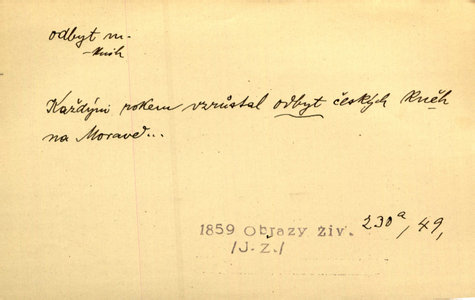 odbyt m.
knih
Každým rokem vzrůstal odbyt českých kněh
na Moravě...
1859 Obrazy živ. 230a, 49,
/J.Z./